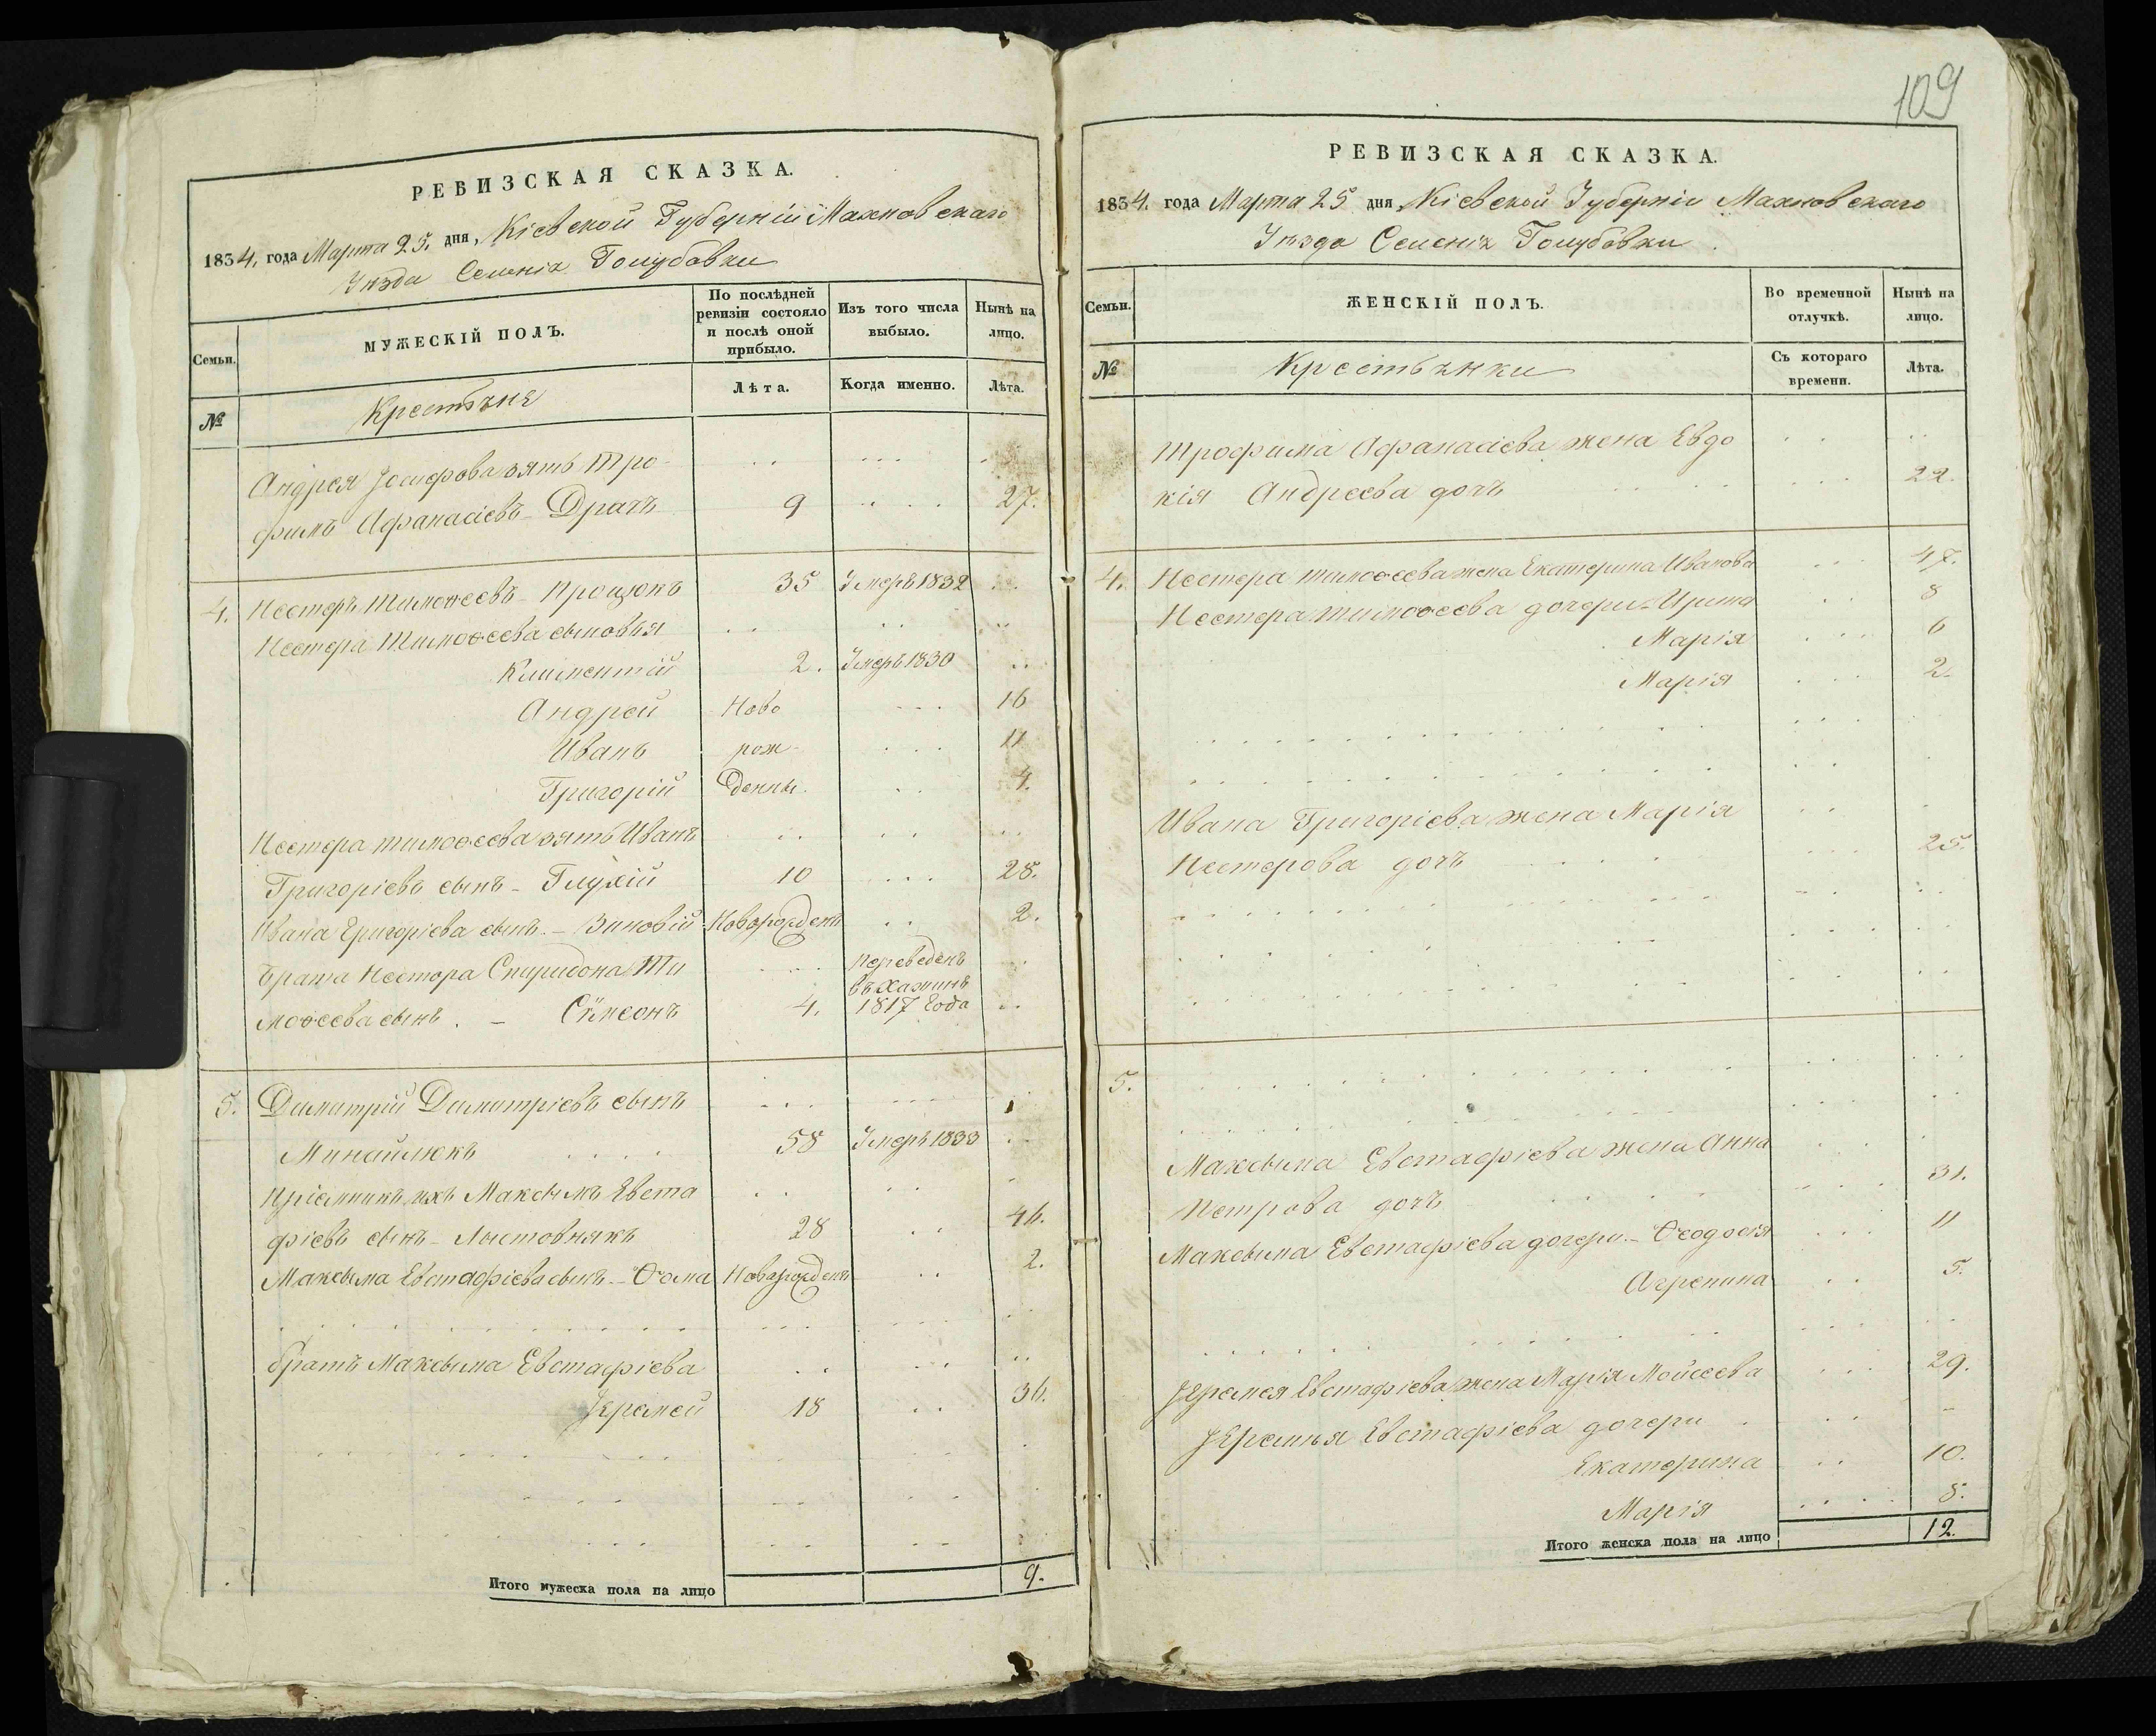 109
РЕВИЗСКАЯ СКАЗКА.
1834. года Марта 25. дня, Кіевской Губерніи Махновскаго
Уѣзда Селенія Голубовки
Семьи.
МУЖЕСКІЙ ПОЛЪ.
По послѣдней ревизіи состояло и послѣ оной прибыло.
Изъ того числа выбыло.
Нынѣ на лицо.
№
Крестьяне
Лѣта.
Когда именно.
Лѣта.
Андрея Іосифова зять Тро-
фимъ Афанасіевъ - Драчъ 9 27.
4. Нестеръ Тимоѳеевъ - Процюкъ 35 Умеръ 1832
Нестера Тимоѳеева сыновья
Климентій 2. Умеръ 1830
Андрей Ново 16
Иванъ рож- 11
Григорій денны. 4.
Нестера Тимоѳеева зять Иванъ
Григоріевъ сынъ - Глухій 10 28.
Ивана Григоріева сынъ. - Зиновій Новорожденъ 2.
Брата Нестора Спиридона Ти переведенъ
моѳеева сынъ. - Сѵмеонъ 4. въ Хажинъ 1817 года
5. Димитрій Димитріевъ сынъ
Минайлюкъ 58 Умеръ 1833
Пріемникъ ихъ Максымъ Евста
фіевъ сынъ - Лыстовнякъ 28 46.
Максыма Евстафіева сынъ. - Ѳома Новорожденъ 2.
братъ Максыма Евстафіева
Іеремей 18 36.
Итого мужеска пола на лицо 9.
РЕВИЗСКАЯ СКАЗКА.
1834. года Марта 25 дня, Кіевской Губерніи Махновскаго
Уѣзда Селенія Голубовки.
Семьи.
ЖЕНСКІЙ ПОЛЪ.
Во временной отлучкѣ.
Нынѣ на лицо.
№
Крестьянки
Съ котораго времени.
Лѣта.
Трофима Афанасіева жена Евдо
кія Андреева дочь 22.
4. Нестера Тимоѳеева жена Екатерина Иванова 47.
Нестера Тимоѳеева дочери - Ирина 8
Марія 6
Марія 2.
Ивана Григоріева жена Марія
Нестерова дочъ 25.
5.
Максыма Евстафіева жена Анна
Петрова дочъ 31.
Максыма Евстафіева дочери. - Ѳеодосія 11
Агрепина 5.
Іеремея Евстафіева жена Марія Мойсеева 29.
Іеремѣя Евстафіева дочери
Екатерина 10.
Марія 8.
Итого женска пола на лицо 12.